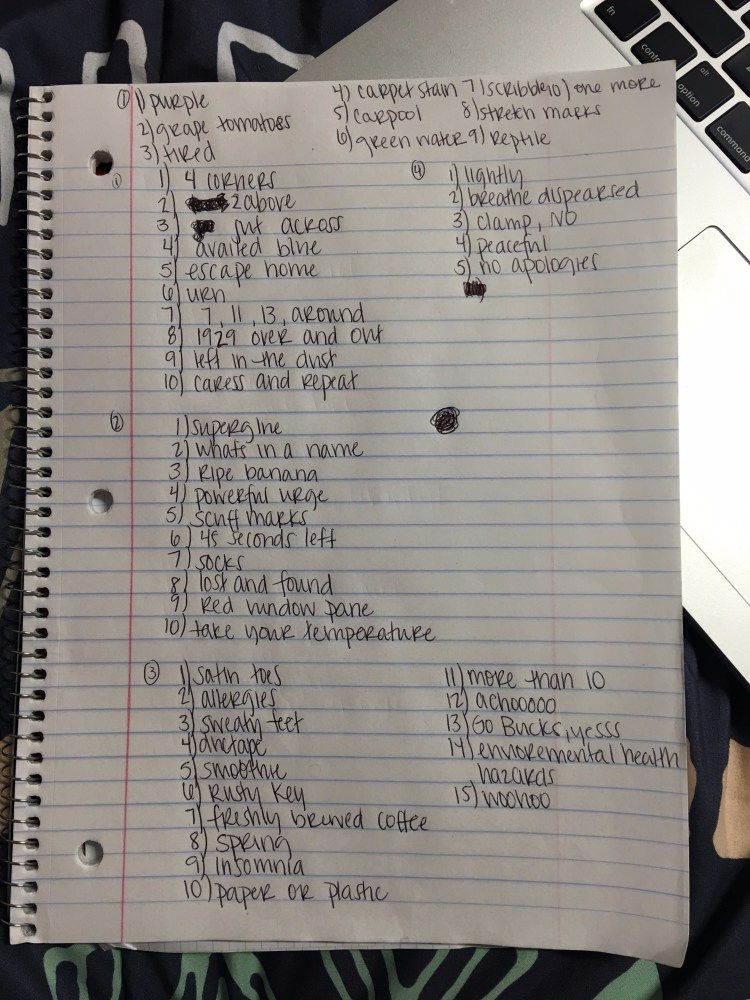 ① 1) purple
2) grape tomatoes
3) tired
4) carpet stain
5) carpool
6) green water
7) scribble
8) stretch marks
9) reptile
10) one more
① 1) 4 corners
2) 2 above
3) put across
4) availed blue
5) escape home
6) urn
7) 7, 11, 13, around
8) 1929 over and out
9) left in the dust
10) caress and repeat
④ 1) lightly
2) breathe dispearsed
3) clamp, NO
4) peaceful
5) no apologies
② 1) superglue
2) whats in a name
3) Ripe banana
4) powerful urge
5) scuff marks
6) 45 seconds left
7) socks
8) lost and found
9) Red window pane
10) take your temperature
③ 1) satin toes
2) allergies
3) sweaty feet
4) ductape
5) smoothie
6) Rusty key
7) freshly brewed coffee
8) spring
9) insomnia
10) paper or plastic
11) more than 10
12) achooooo
13) Go Bucks, yesss
14) enviremental health
hazards
15) woohoo
fn
control
alt
option
command